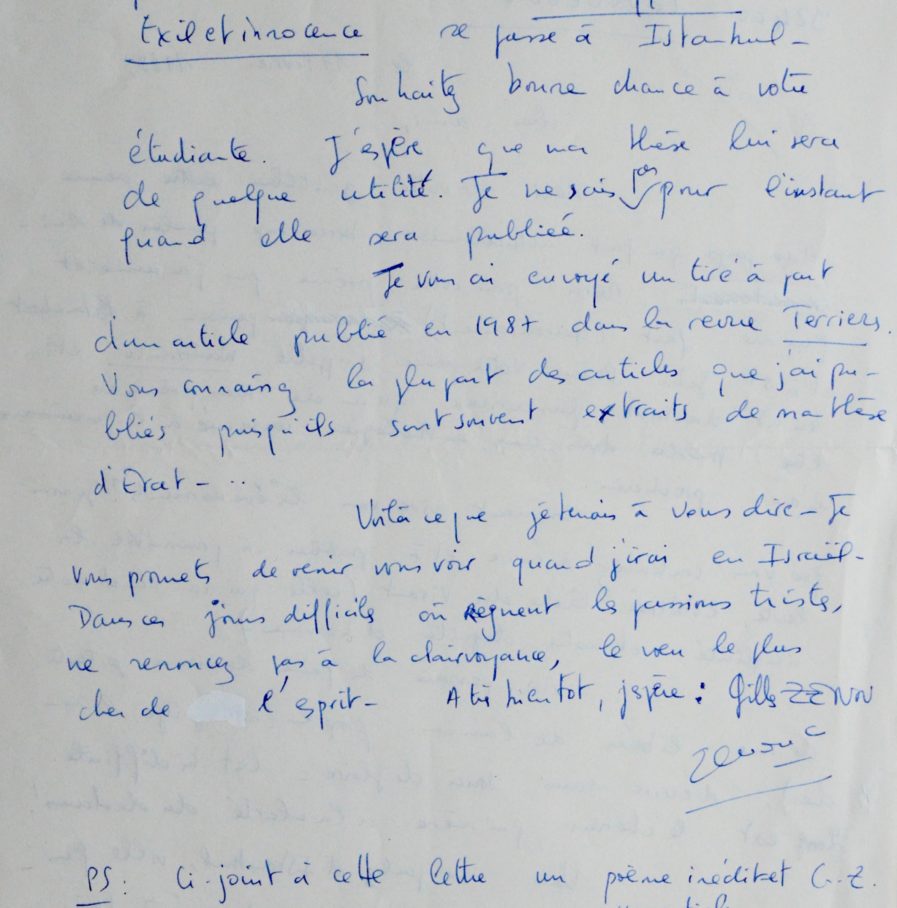 Exil et innocence se passe à Istanbul -
Souhaitez bonne chance à votre
étudiante. J'espère que ma thèse lui sera
de quelque utilité. Je ne sais pas pour l'instant
quand elle sera publiée.
Je vous ai envoyé un tiré à part
d'un article publié en 1987 dans la revue Terriers.
Vous connaissez la plupart des articles que j'ai pu-
bliés puisqu'ils sont souvent extraits de ma thèse
d'Etat - ..
Voilà ce que je tenais à vous dire - Je
vous promets de venir vous voir quand j'irai en Israël -
Dans ces jours difficiles où règnent les passions tristes,
ne renoncez pas à la clairvoyance, le vœu le plus
cher de l'esprit - A très bientôt, j'espère : Gilles ZENOU
PS : Ci-joint à cette lettre un poème inédit et G.Z.